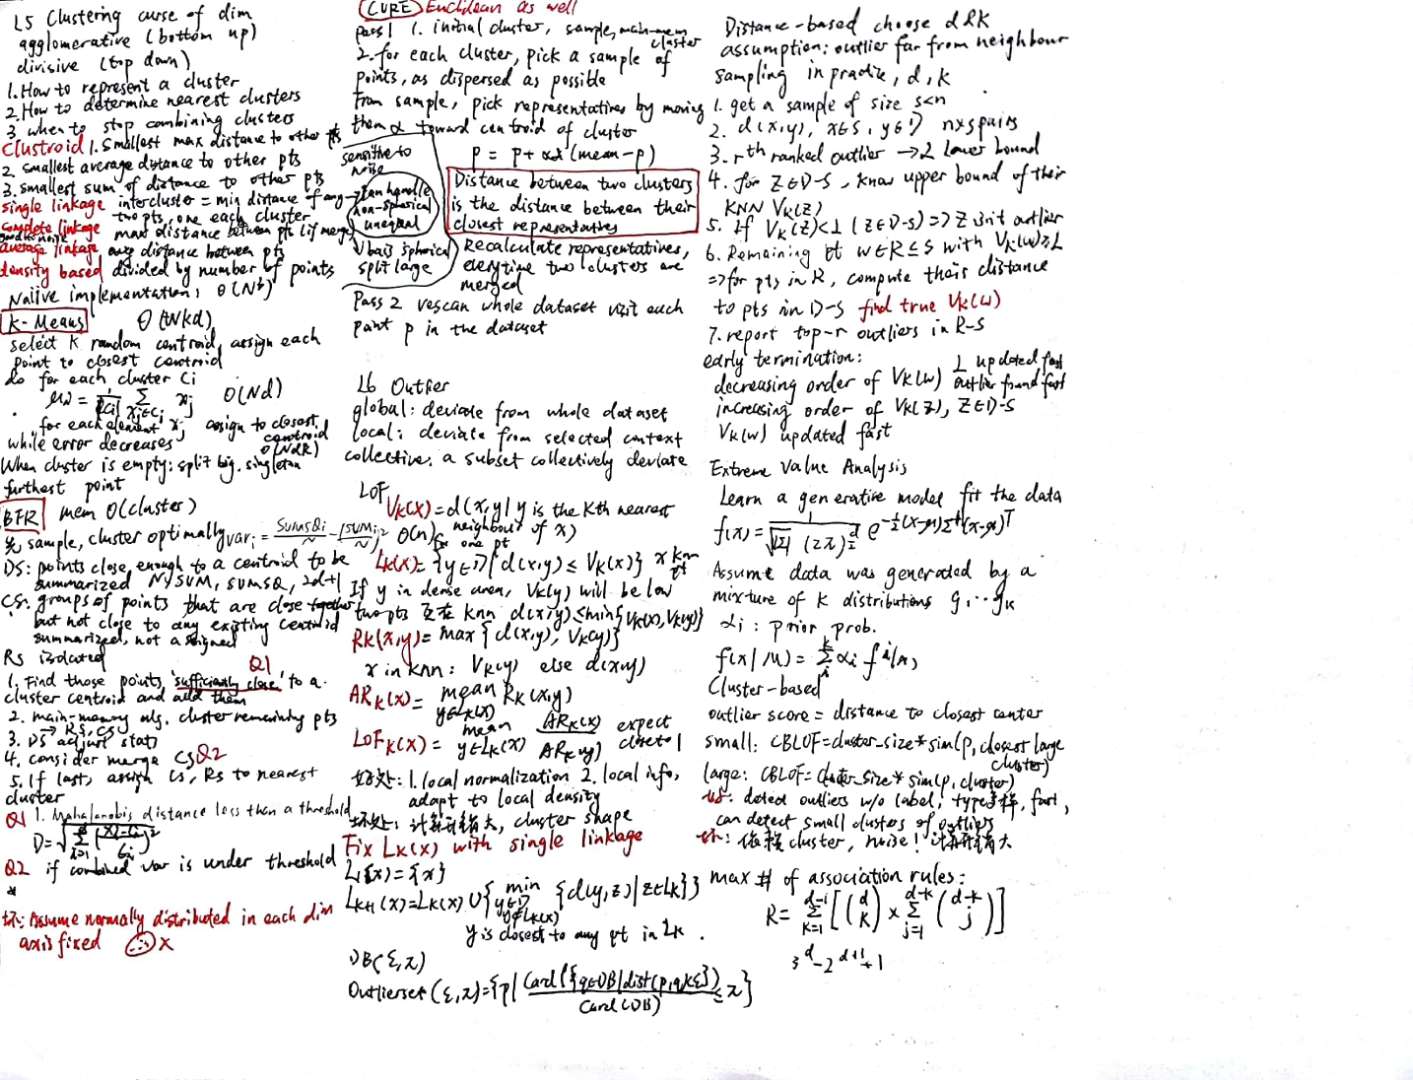 L5 Clustering curse of dim
agglomerative (bottom up)
divisive (top down)
1. How to represent a cluster
2. How to determine nearest clusters
3 when to stop combining clusters
Clustroid 1. Smallest max distance to other pts
2. smallest average distance to other pts
3. smallest sum of distance to other pts
single linkage intercluster = min distance of any
two pts, one each cluster
complete linkage max distance between pts (if merge)
average linkage avg distance between pts
density based divided by number of points
Naiive implementation: O(N³)
K-Means O(Nkd)
select K random centroid, assign each
point to closest centroid
do for each cluster Ci
μi = 1/|Ci| Σ xj∈Ci xj O(Nd)
for each element xj assign to closest
centroid
while error decreases O(NdK)
When cluster is empty: split big. singleton
furthest point
BFR mem O(cluster)
先 sample, cluster optimally vari = SUMSQi/N - (SUMi/N)²
DS: points close enough to a centroid to be
summarized N, SUM, SUMSQ, 2d+1
CS: groups of points that are close together
but not close to any existing centroid
summarized, not assigned
RS isolated
Q1
1. Find those points 'sufficiently close' to a
cluster centroid and add them
2. main-memory alg. cluster remaining pts
→ RS, CS
3. DS adjust stats
4. consider merge CS Q2
5. If last, assign CS, RS to nearest
cluster
Q1 1. Mahalanobis distance less than a threshold
D = √Σ i=1 ((xi-ci)/σi)²
Q2 if combined var is under threshold
坏: Assume normally distributed in each dim
axis fixed X
CURE Euclidean as well
pass 1 1. initial cluster, sample, main-mem
cluster
2. for each cluster, pick a sample of
points, as dispersed as possible
From sample, pick representatives by moving
them α toward centroid of cluster
p = p + α (mean-p)
sensitive to
noise
can handle
non-spherical
unequal
bais spherical
split large
Distance between two clusters
is the distance between their
closest representatives
Recalculate representatives,
everytime two clusters are
merged
Pass 2 rescan whole dataset visit each
point p in the dataset
L6 Outlier
global: deviate from whole dataset
local: deviate from selected context
collective: a subset collectively deviate
LOF
VK(x) = d(x,y| y is the Kth nearest
neighbour of x)
O(n) for one pt
LK(x) = {y∈D | d(x,y) ≤ VK(x)} x knn
pt
If y in dense area, VK(y) will be low
two pts 互在 knn d(x,y) ≤ min{VK(x), VK(y)}
RK(x,y) = max {d(x,y), VK(y)}
x in knn: VK(y) else d(x,y)
ARK(x) = mean y∈LK(x) RK(x,y)
LOFK(x) = mean y∈LK(x) ARK(x)/ARK(y) expect
close to 1
好处: 1. local normalization 2. local info,
adapt to local density
坏处: 计算开销大, cluster shape
Fix LK(x) with single linkage
L1(x) = {x}
LK+1(x) = LK(x) ∪ { min y∈D y∉LK(x) {d(y,z) | z∈LK}}
y is closest to any pt in LK.
DB(ε,π)
Outlierset (ε,π) = {p | Card({q∈DB | dist(p,q)<ε})/Card(DB) ≤ π}
Distance-based choose d & K
assumption: outlier far from neighbour
sampling in practice, d, K
1. get a sample of size s<n
2. d(x,y), x∈S, y∈D n×s pairs
3. rth ranked outlier → L lower bound
4. for z∈D-S, know upper bound of their
KNN VK(z)
5. If VK(z)<L (z∈D-S) => z isn't outlier
6. Remaining pt w∈R⊆S with VK(w)≥L
=> for pts in R, compute their distance
to pts in D-S find true VK(w)
7. report top-r outliers in R-S
early termination:
decreasing order of VK(w) L updated fast
outlier found fast
increasing order of VK(z), z∈D-S
VK(w) updated fast
Extreme Value Analysis
Learn a generative model fit the data
f(x) = 1/(√|Σ| (2π)^(d/2)) e^(-½(x-μ)Σ⁻¹(x-μ)ᵀ)
Assume data was generated by a
mixture of K distributions g1..gK
αi: prior prob.
f(x|M) = Σ αi fi(x)
Cluster-based
outlier score = distance to closest center
small: CBLOF = cluster_size * sim(p, closest large
cluster)
large: CBLOF = cluster_size * sim(p, cluster)
好: detect outliers w/o label, type多样, fast,
can detect small clusters of outliers
坏: 依赖 cluster, noise! 计算开销大
max # of association rules:
R = Σ k=1 d-1 [(d k) × Σ j=1 d-k (d-k j)]
3^d - 2^(d+1) + 1